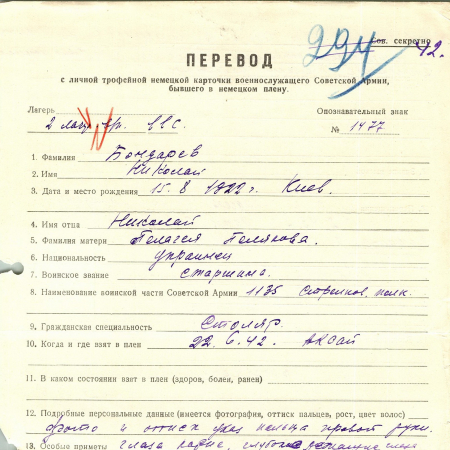 294
Сов. секретно
42.
ПЕРЕВОД
с личной трофейной немецкой карточки военнослужащего Советской Армии,
бывшего в немецком плену.
Лагерь
Опознавательный знак
2 лаг. ввс.
№ 1477
1. Фамилия Бондарев
2. Имя Николай
3. Дата и место рождения 15. 8 1922 г. Киев.
4. Имя отца Николай
5. Фамилия матери Пелагея Полякова.
6. Национальность украинец
7. Воинское звание старшина.
8. Наименование воинской части Советской Армии 1135 Стрелков. полк.
9. Гражданская специальность Столяр.
10. Когда и где взят в плен 22. 6. 42. Аксай
11. В каком состоянии взят в плен (здоров, болен, ранен)
12. Подробные персональные данные (имеется фотография, оттиск пальцев, рост, цвет волос)
фото и оттиск указ пальца правой руки.
13. Особые приметы глаза карие,